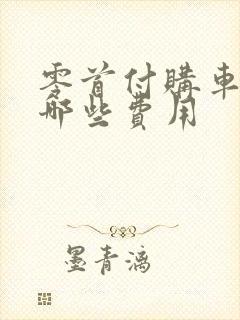 零首付購車
哪些費用
墨青漓